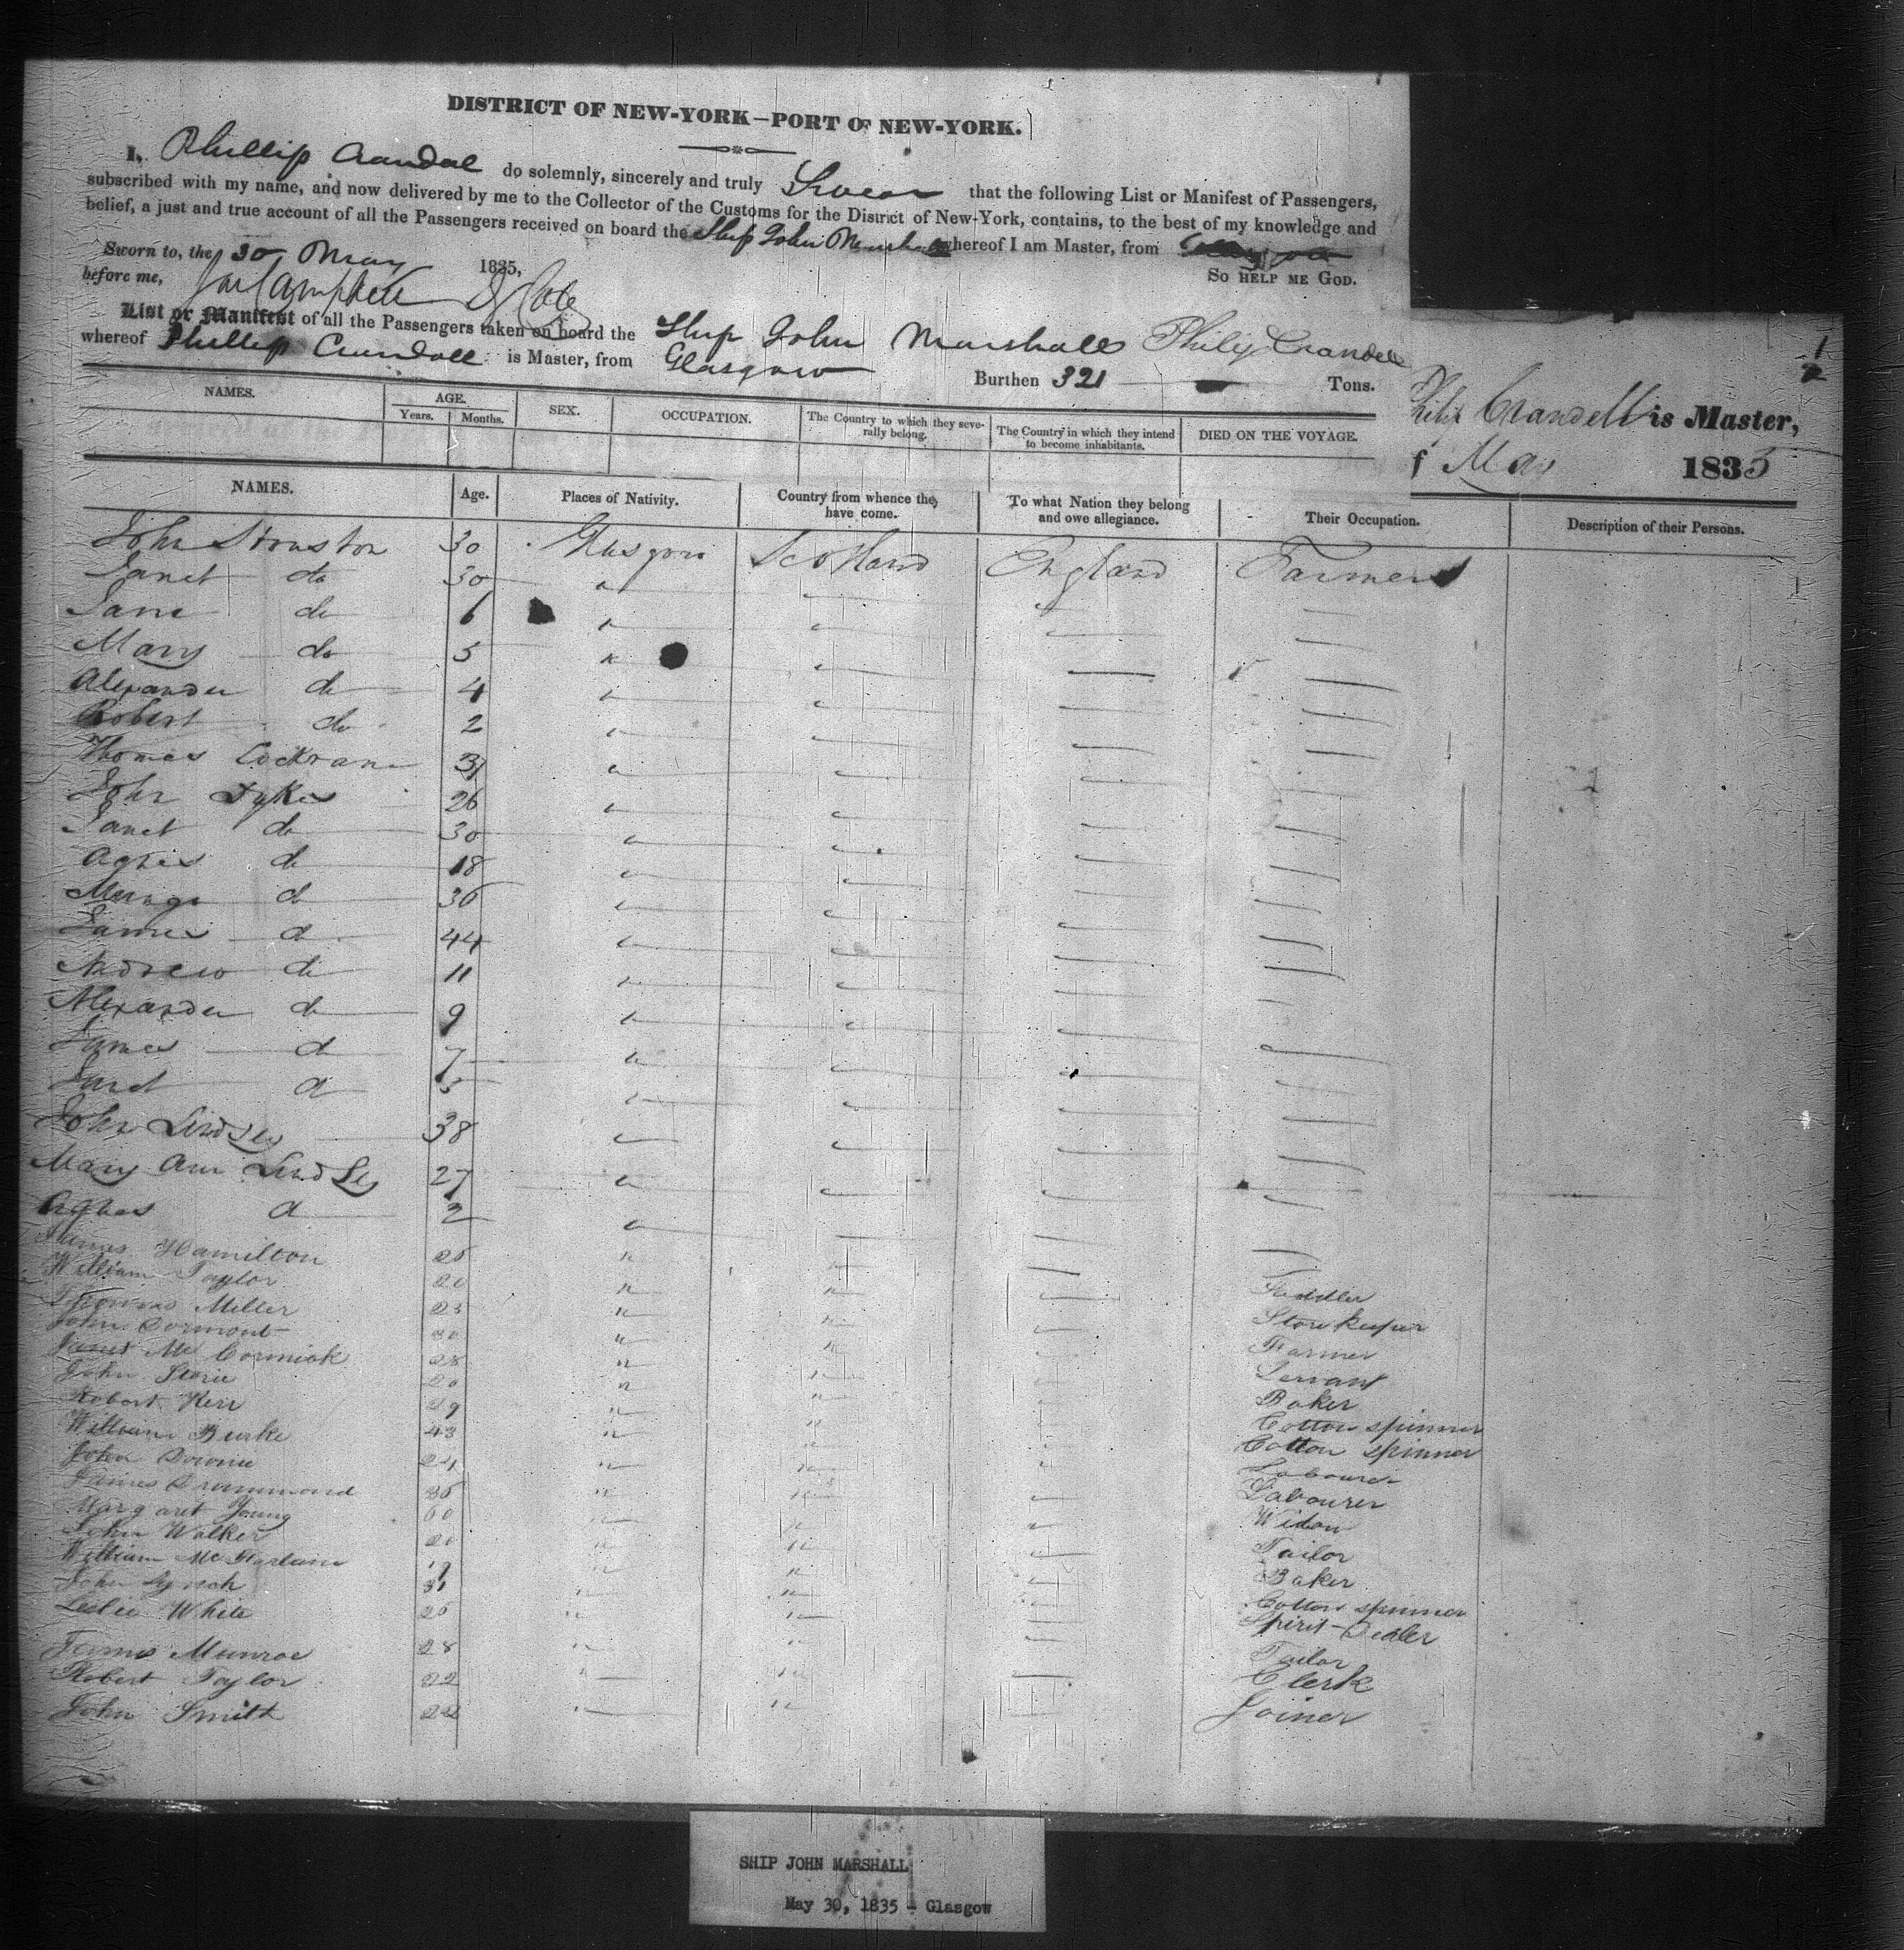 DISTRICT OF NEW-YORK—PORT OF NEW-YORK.
I, Phillip Crandal do solemnly, sincerely and truly Swear that the following List or Manifest of Passengers,
subscribed with my name, and now delivered by me to the Collector of the Customs for the District of New-York, contains, to the best of my knowledge and
belief, a just and true account of all the Passengers received on board the Ship John Marshall whereof I am Master, from Glasgow
Sworn to, the 30 May 1835,
before me,
SO HELP ME GOD.
List or Manifest of all the Passengers taken on board the Ship John Marshall Philip Crandell
whereof Phillip Crandall is Master, from Glasgow Burthen 321 Tons.
1
2
Philip Crandell is Master,
f May 1835
NAMES. AGE. SEX. OCCUPATION. The Country to which they severally belong. The Country in which they intend to become inhabitants. DIED ON THE VOYAGE.
Years. Months.
NAMES. Age. Places of Nativity. Country from whence they have come. To what Nation they belong and owe allegiance. Their Occupation. Description of their Persons.
John 30 Glasgow Scotland England Farmers
Janet do 30 "
Jane do 6 "
Mary do 5 "
Alexander do 4 "
Robert do 2 "
Thomas Cockrane 31 "
John Dykes 26 "
Janet do 30 "
Agnes do 18 "
Mungo do 36 "
James do 44 "
Andrew do 11 "
Alexander do 9 "
James do 7 "
Janet do 5 "
John Lindsey 38 "
Mary Ann Lindsey 27 "
Agnes do 2 "
James Hamilton 25 " "
William Taylor 20 " "
Thomas Miller 23 " " Storekeeper
John Dormont 30 " " Farmer
James Mc Cormick 28 " " Servant
John Storie 20 " " Baker
Robert Kerr 29 " " Cotton spinner
William Burke 43 " " Cotton spinner
John Downie 24 " " Labourer
James Drummond 35 " " Labourer
Margaret Young 60 " " Widow
John Walker 20 " " Tailor
William Mc Farlane 19 " " Baker
John Lynch 31 " " Cotton spinner
Leslie White 25 " " Spirit-Dealer
James Munroe 28 " " Tailor
Robert Taylor 22 " " Clerk
John Smith 22 " " Joiner
SHIP JOHN MARSHALL
May 30, 1835 - Glasgow